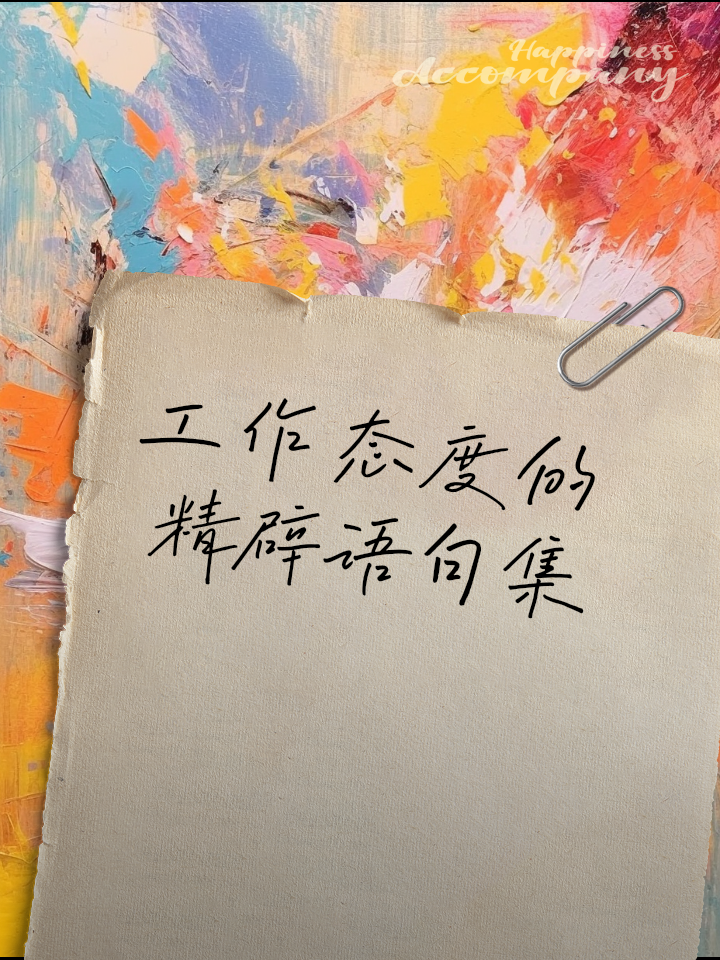 Happiness
Accompany
工作态度的
精辟语句集